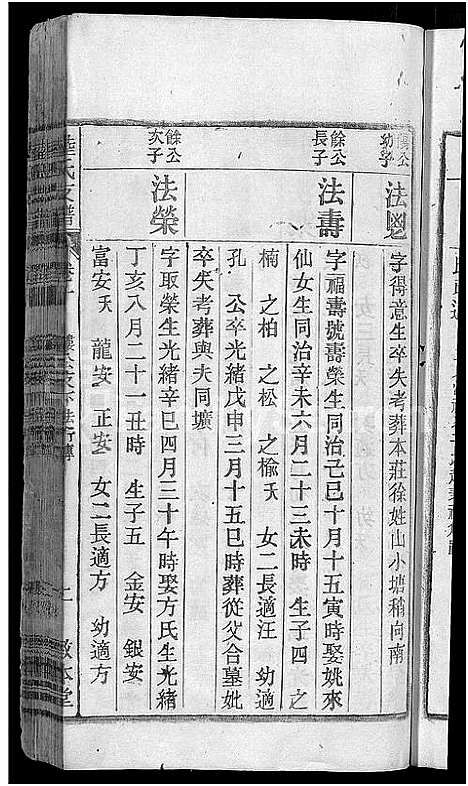 餘公幼子
法恩
字得意生卒失考葬本莊徐姓山小塘稍向南
餘公長子
法壽
字福壽號壽榮生同治己巳十月十五寅時娶姚來
仙女生同治辛未六月二十三未時 生子四 之
楠 之柏 之松 之榆夭 女二長適汪 幼適
孔 公卒光緒戊申三月十五巳時葬從父合墓妣
卒失考葬與夫同壙
餘公次子
法榮
字取榮生光緒辛巳四月三十午時娶方氏生光緒
丁亥八月二十一丑時 生子五 金安 銀安
富安夭 龍安 正安 女二長適方 幼適方
氏支譜
敦本堂